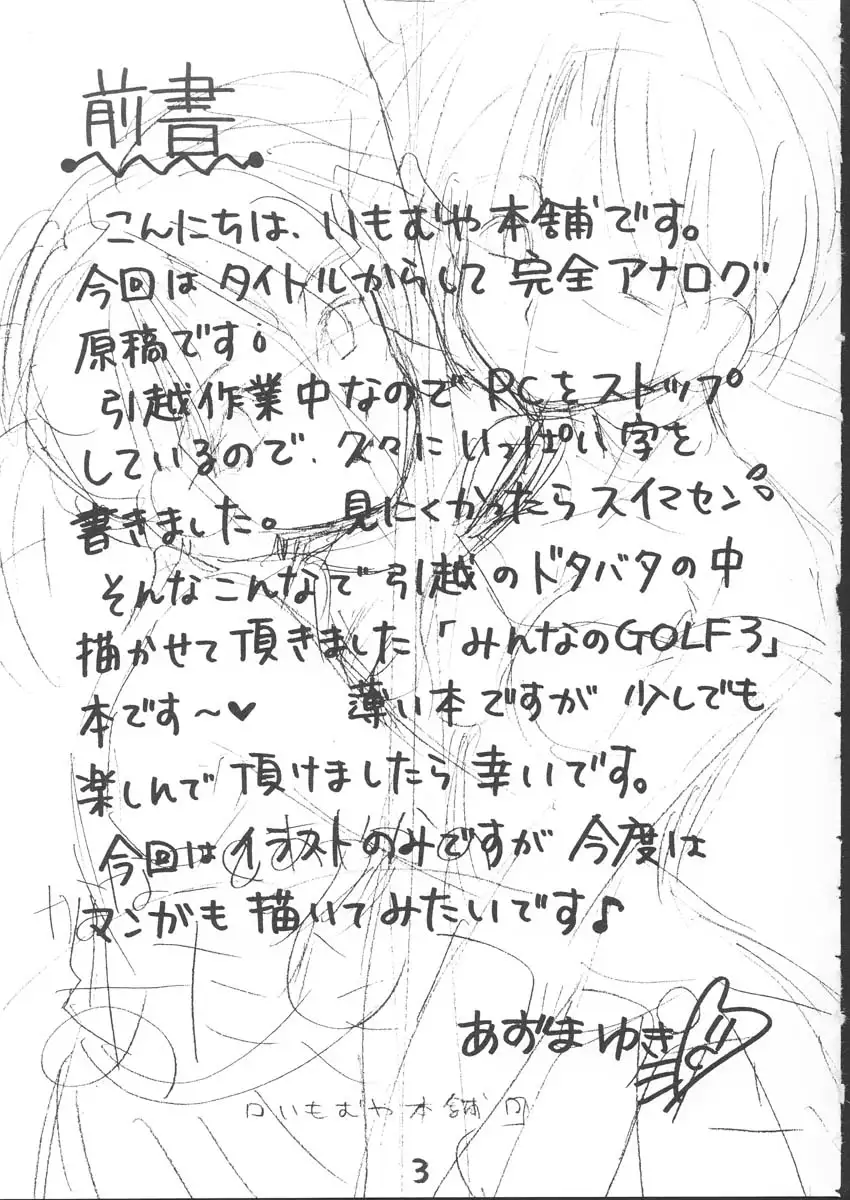 前書
こんにちは、いもむや本舗です。
今回はタイトルからして完全アナログ
原稿です!
引越作業中なのでPCをストップ
しているので、久々にいっぱい字を
書きました。 見にくかったらスイマセン
そんなこんなで引越のドタバタの中
描かせて頂きました「みんなのGOLF3」
本です～♥ 薄い本ですが少しでも
楽しんで頂けましたら幸いです。
今回はイラストのみですが今度は
マンガも描いてみたいです♪
あずまゆき
いもむや本舗
3